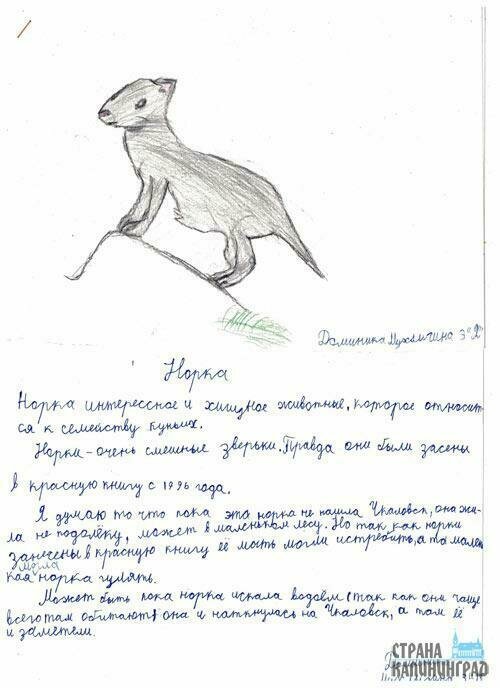 Доминика 3"Д"
Норка
Норка интерессное и хищное животные, которое относит-
ся к семейству куньих.
Норки - очень смешные зверьки. Правда они были засены
в красную книгу с 1996 года.
Я думаю то что пока эта норка не нашла Чкаловск, она жи-
ла не подолёку, может в маленьком лесу. Но так как норки
занесены в красную книгу её мать могли истребить, а та мален
кая могла норка гулять.
Может быть пока норка искала водоём (так как они чаще
всего там обитают) она и наткнулась на Чкаловск, а там её
и заметели.
СТРАНА
КАЛИНИНГРАД